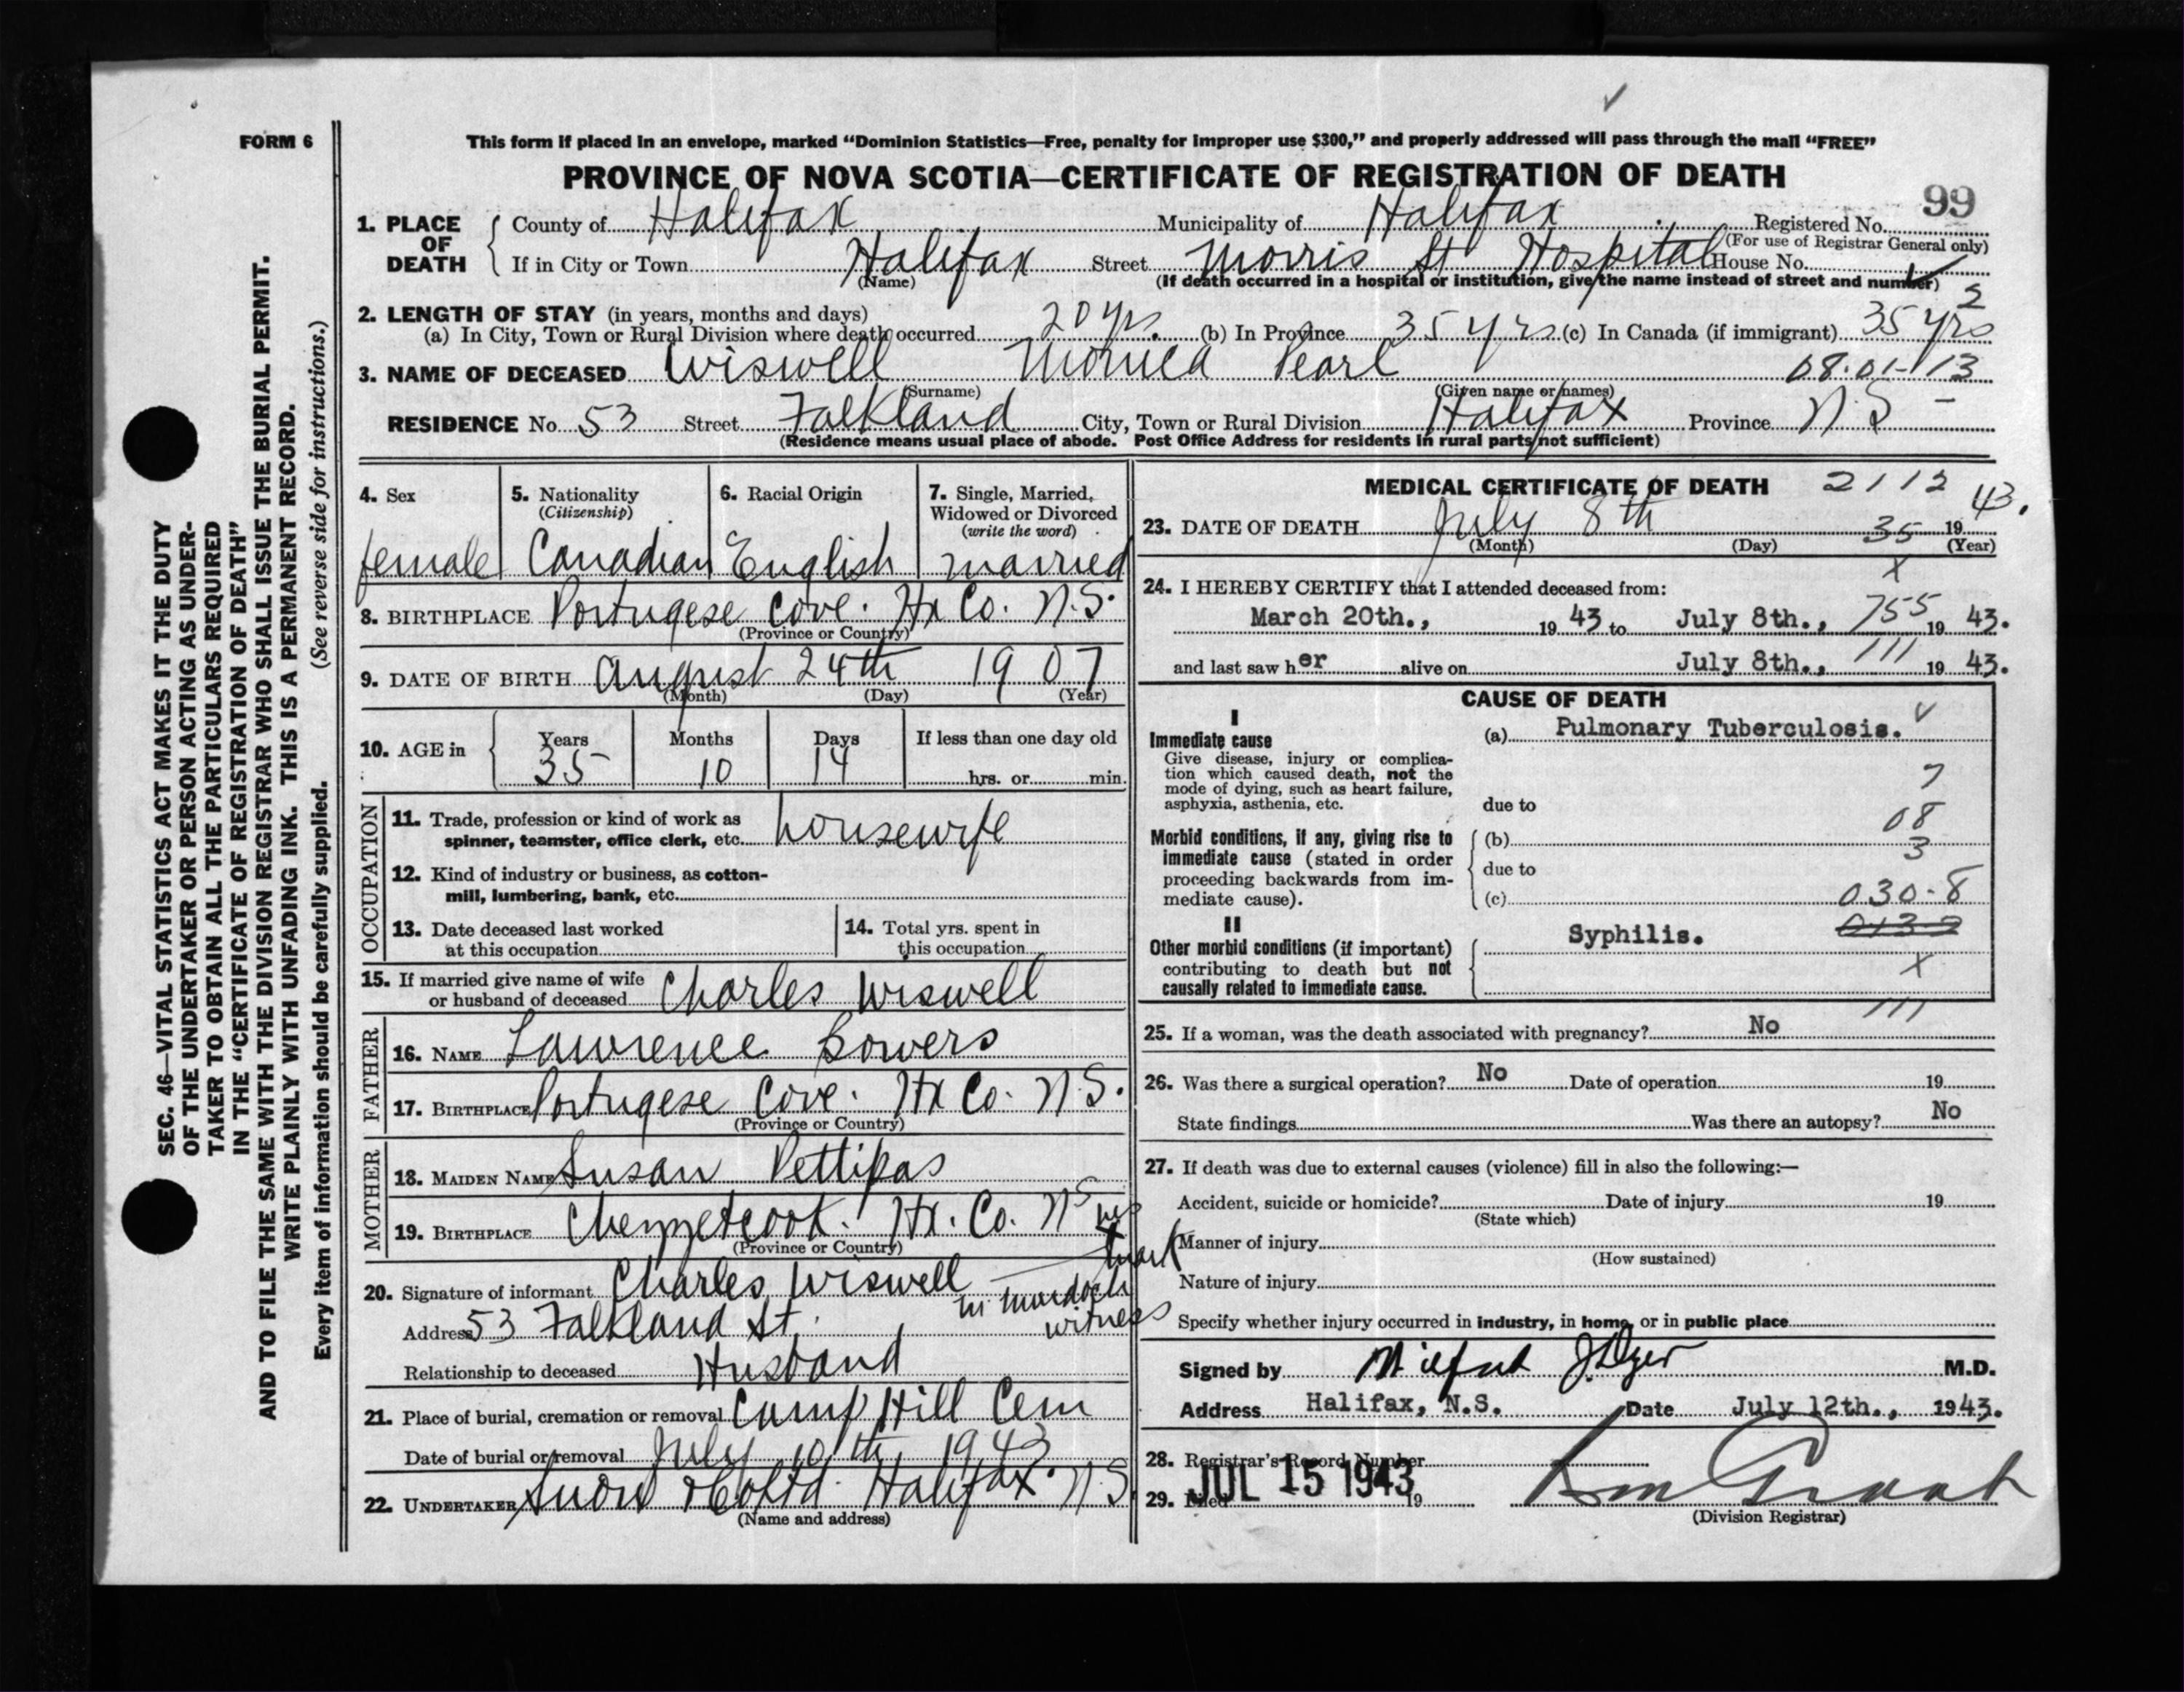 FORM 6
This form if placed in an envelope, marked “Dominion Statistics—Free, penalty for improper use $300,” and properly addressed will pass through the mail “FREE”
PROVINCE OF NOVA SCOTIA—CERTIFICATE OF REGISTRATION OF DEATH
99
1. PLACE OF DEATH County of Halifax Municipality of Halifax Registered No.
(For use of Registrar General only)
If in City or Town Halifax Street Morris St Hospital House No.
(Name) (If death occurred in a hospital or institution, give the name instead of street and number)
2. LENGTH OF STAY (in years, months and days) 2
(a) In City, Town or Rural Division where death occurred 20 yrs. (b) In Province 35 yrs (c) In Canada (if immigrant) 35 yrs
3. NAME OF DECEASED Wiswell Monica Pearl 08.01-13
(Surname) (Given name or names)
RESIDENCE No. 53 Street Falkland City, Town or Rural Division Halifax Province N.S -
(Residence means usual place of abode. Post Office Address for residents in rural parts not sufficient)
4. Sex 5. Nationality 6. Racial Origin 7. Single, Married,
(Citizenship) Widowed or Divorced
(write the word)
female Canadian English married
8. BIRTHPLACE Portugese Cove. Hx Co. N.S.
(Province or Country)
9. DATE OF BIRTH August 24th 1907
(Month) (Day) (Year)
10. AGE in Years Months Days If less than one day old
35 10 14 hrs. or min.
OCCUPATION
11. Trade, profession or kind of work as
spinner, teamster, office clerk, etc. housewife
12. Kind of industry or business, as cotton-
mill, lumbering, bank, etc.
13. Date deceased last worked 14. Total yrs. spent in
at this occupation this occupation
15. If married give name of wife
or husband of deceased Charles Wiswell
FATHER
16. NAME Lawrence Bowers
17. BIRTHPLACE Portugese Cove. Hx Co. N.S.
(Province or Country)
MOTHER
18. MAIDEN NAME Susan Pettipas
19. BIRTHPLACE Chezzetcook. Hx. Co. N S
(Province or Country)
20. Signature of informant Charles Wiswell his x mark
M Murdoch witness
Address 53 Falkland St.
Relationship to deceased Husband
21. Place of burial, cremation or removal Camp Hill Cem
Date of burial or removal July 10th 1943
22. UNDERTAKER Snow & Co Ltd. Halifax. N.S
(Name and address)
MEDICAL CERTIFICATE OF DEATH 2112
23. DATE OF DEATH July 8th 35 19 43.
(Month) (Day) (Year)
x
24. I HEREBY CERTIFY that I attended deceased from:
March 20th., 19 43 to July 8th., 755 19 43.
and last saw her alive on July 8th., 111 19 43.
CAUSE OF DEATH
I
Immediate cause (a) Pulmonary Tuberculosis.
Give disease, injury or complica-
tion which caused death, not the
mode of dying, such as heart failure,
asphyxia, asthenia, etc. due to 7
08
Morbid conditions, if any, giving rise to (b)
3
immediate cause (stated in order
proceeding backwards from im- due to
mediate cause). (c) 030-8
II
Other morbid conditions (if important) Syphilis. 0139
contributing to death but not x
causally related to immediate cause.
111
25. If a woman, was the death associated with pregnancy? No
26. Was there a surgical operation? No Date of operation 19
State findings Was there an autopsy? No
27. If death was due to external causes (violence) fill in also the following:—
Accident, suicide or homicide? Date of injury 19
(State which)
Manner of injury
(How sustained)
Nature of injury
Specify whether injury occurred in industry, in home, or in public place
Signed by J Dyer M.D.
Address Halifax, N.S. Date July 12th., 1943.
28. Registrar's Record Number
29. Filed JUL 15 1943 19
(Division Registrar)
SEC. 46—VITAL STATISTICS ACT MAKES IT THE DUTY
OF THE UNDERTAKER OR PERSON ACTING AS UNDER-
TAKER TO OBTAIN ALL THE PARTICULARS REQUIRED
IN THE “CERTIFICATE OF REGISTRATION OF DEATH”
AND TO FILE THE SAME WITH THE DIVISION REGISTRAR WHO SHALL ISSUE THE BURIAL PERMIT.
WRITE PLAINLY WITH UNFADING INK. THIS IS A PERMANENT RECORD.
Every item of information should be carefully supplied. (See reverse side for instructions.)